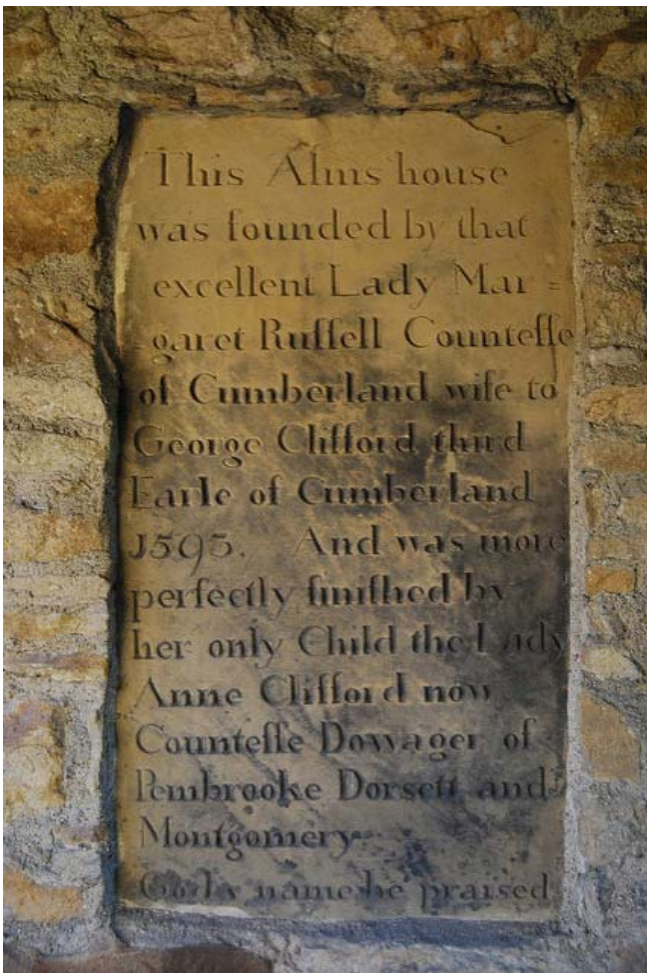 This Alms house
was founded by that
excellent Lady Mar=
-garet Ruſſell Counteſſe
of Cumberland wife to
George Clifford third
Earle of Cumberland
1593. And was more
perfectly finiſhed by
her only Child the Lady
Anne Clifford now
Counteſſe Dowager of
Pembrooke Dorsett and
Montgomery
Gods name be praised